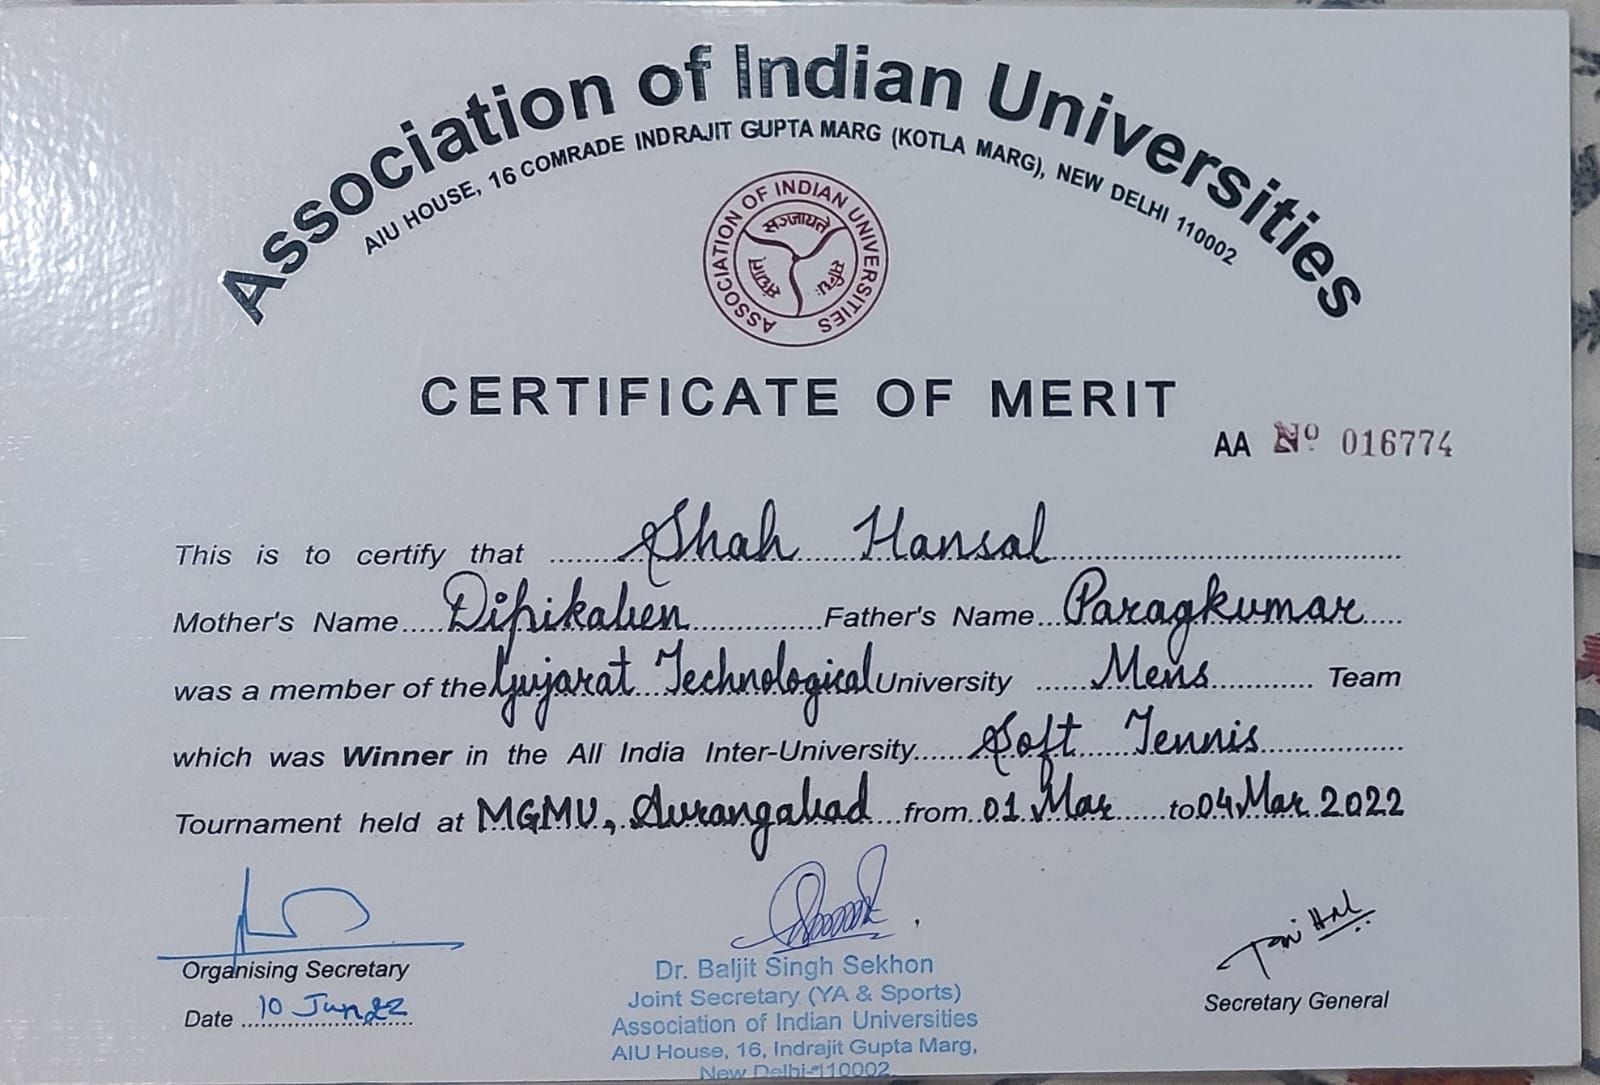 Association of Indian Universities
AIU HOUSE, 16 COMRADE INDRAJIT GUPTA MARG (KOTLA MARG), NEW DELHI 110002
ASSOCIATION OF INDIAN UNIVERSITIES
सञ्जायते
संघानं
CERTIFICATE OF MERIT
AA Nº 016774
This is to certify that Shah Hansal
Mother's Name Dipikaben Father's Name Paragkumar
was a member of the Gujarat Technological University Mens Team
which was Winner in the All India Inter-University Soft Tennis
Tournament held at MGMU, Aurangabad from 01 Mar to 04 Mar 2022
Organising Secretary
Date 10 Jun 22
Dr. Baljit Singh Sekhon
Joint Secretary (YA & Sports)
Association of Indian Universities
AIU House, 16, Indrajit Gupta Marg,
New Delhi-110002
Secretary General